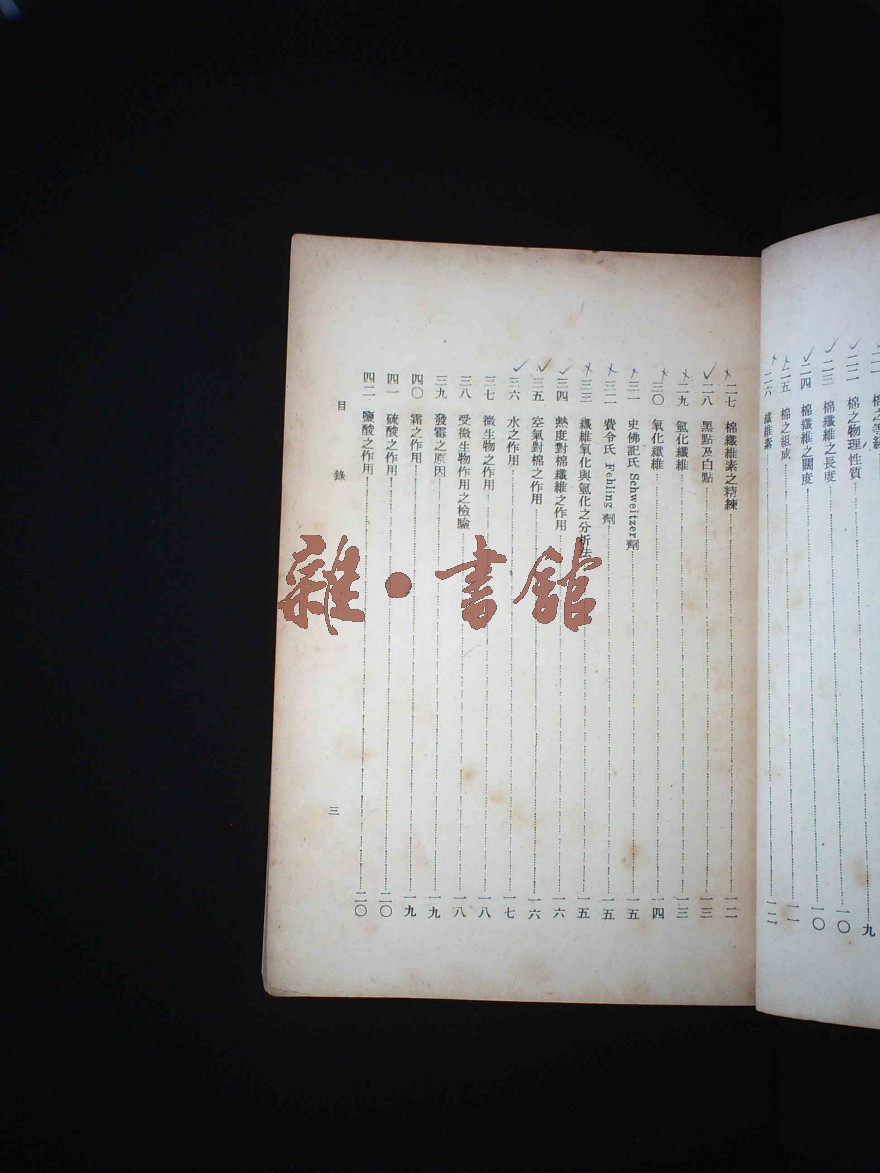 棉之等級
二二 棉之物理性質 一〇
二三 棉纖維之長度 一〇
二四 棉纖維之闊度 一〇
二五 棉之組成 一一
二六 纖維素 一二
二七 棉纖維素之精練 一二
二八 黑點及白點 一三
二九 氫化纖維 一三
三〇 氧化纖維 一四
三一 史佛記氏 Schweitzer劑 一五
三二 費令氏 Fehling 劑 一五
三三 纖維氧化與氫化之分析法 一五
三四 熱度對棉纖維之作用 一六
三五 空氣對棉之作用 一六
三六 水之作用 一七
三七 微生物之作用 一八
三八 受微生物作用之檢驗 一八
三九 發霉之原因 一九
四〇 霜之作用 一九
四一 硫酸之作用 二〇
四二 鹽酸之作用 二〇
目錄 三
雜·書館